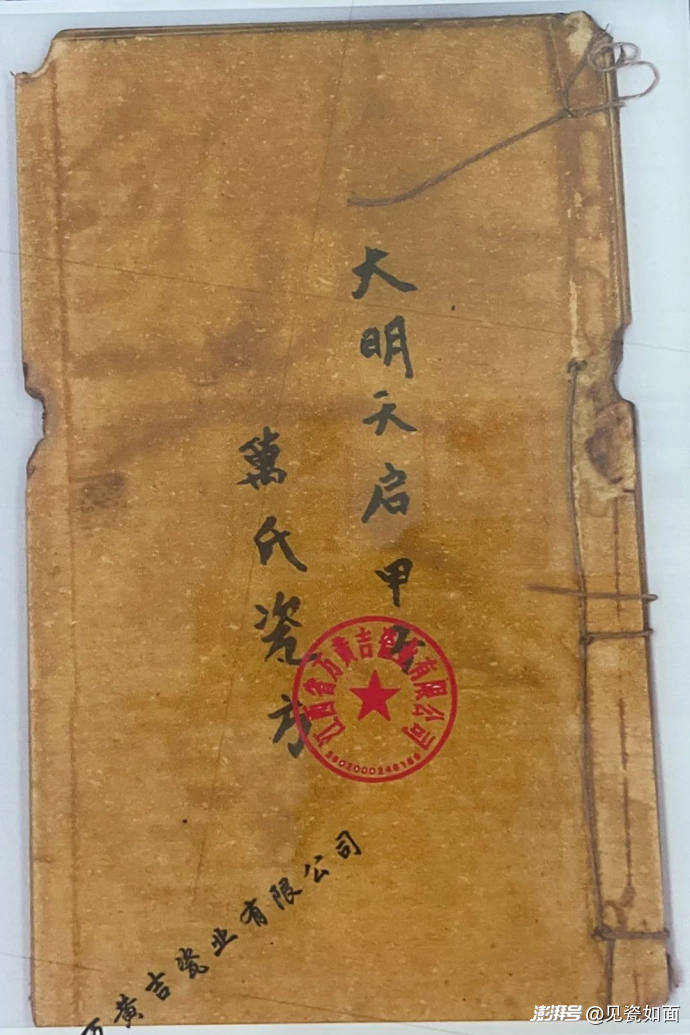 大明天启甲
萬氏瓷方
江西省万黄吉瓷业有限公司
万黄吉瓷业有限公司
澎湃号@见瓷如面